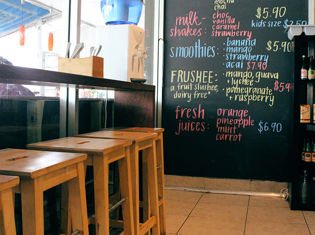 mocha
chai
milk- choc $5.90
shakes: vanilla kids size $2.50
caramel
strawberry
smoothies: banana $5.90
mango
strawberry
acai $7.90
FRUSHEE: mango, guava
a fruit slushee, + lychee
dairy free* pomegranate
+ raspberry
fresh orange
juices: pineapple $6.90
"mint"
carrot